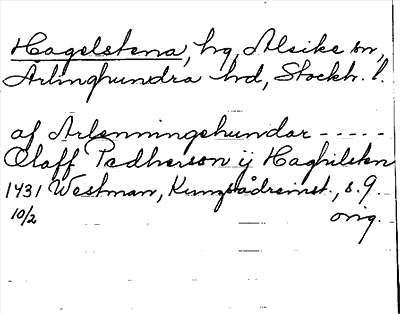 Hagelstena, hg, Alsike sn,
Ärlinghundra hd, Stockh. l.
af Arlenningehundar - - - - -
Olaff Pædherson ij Haghilsten
1431 Westman, Kungsådreinst., s. 9.
10/2 orig.